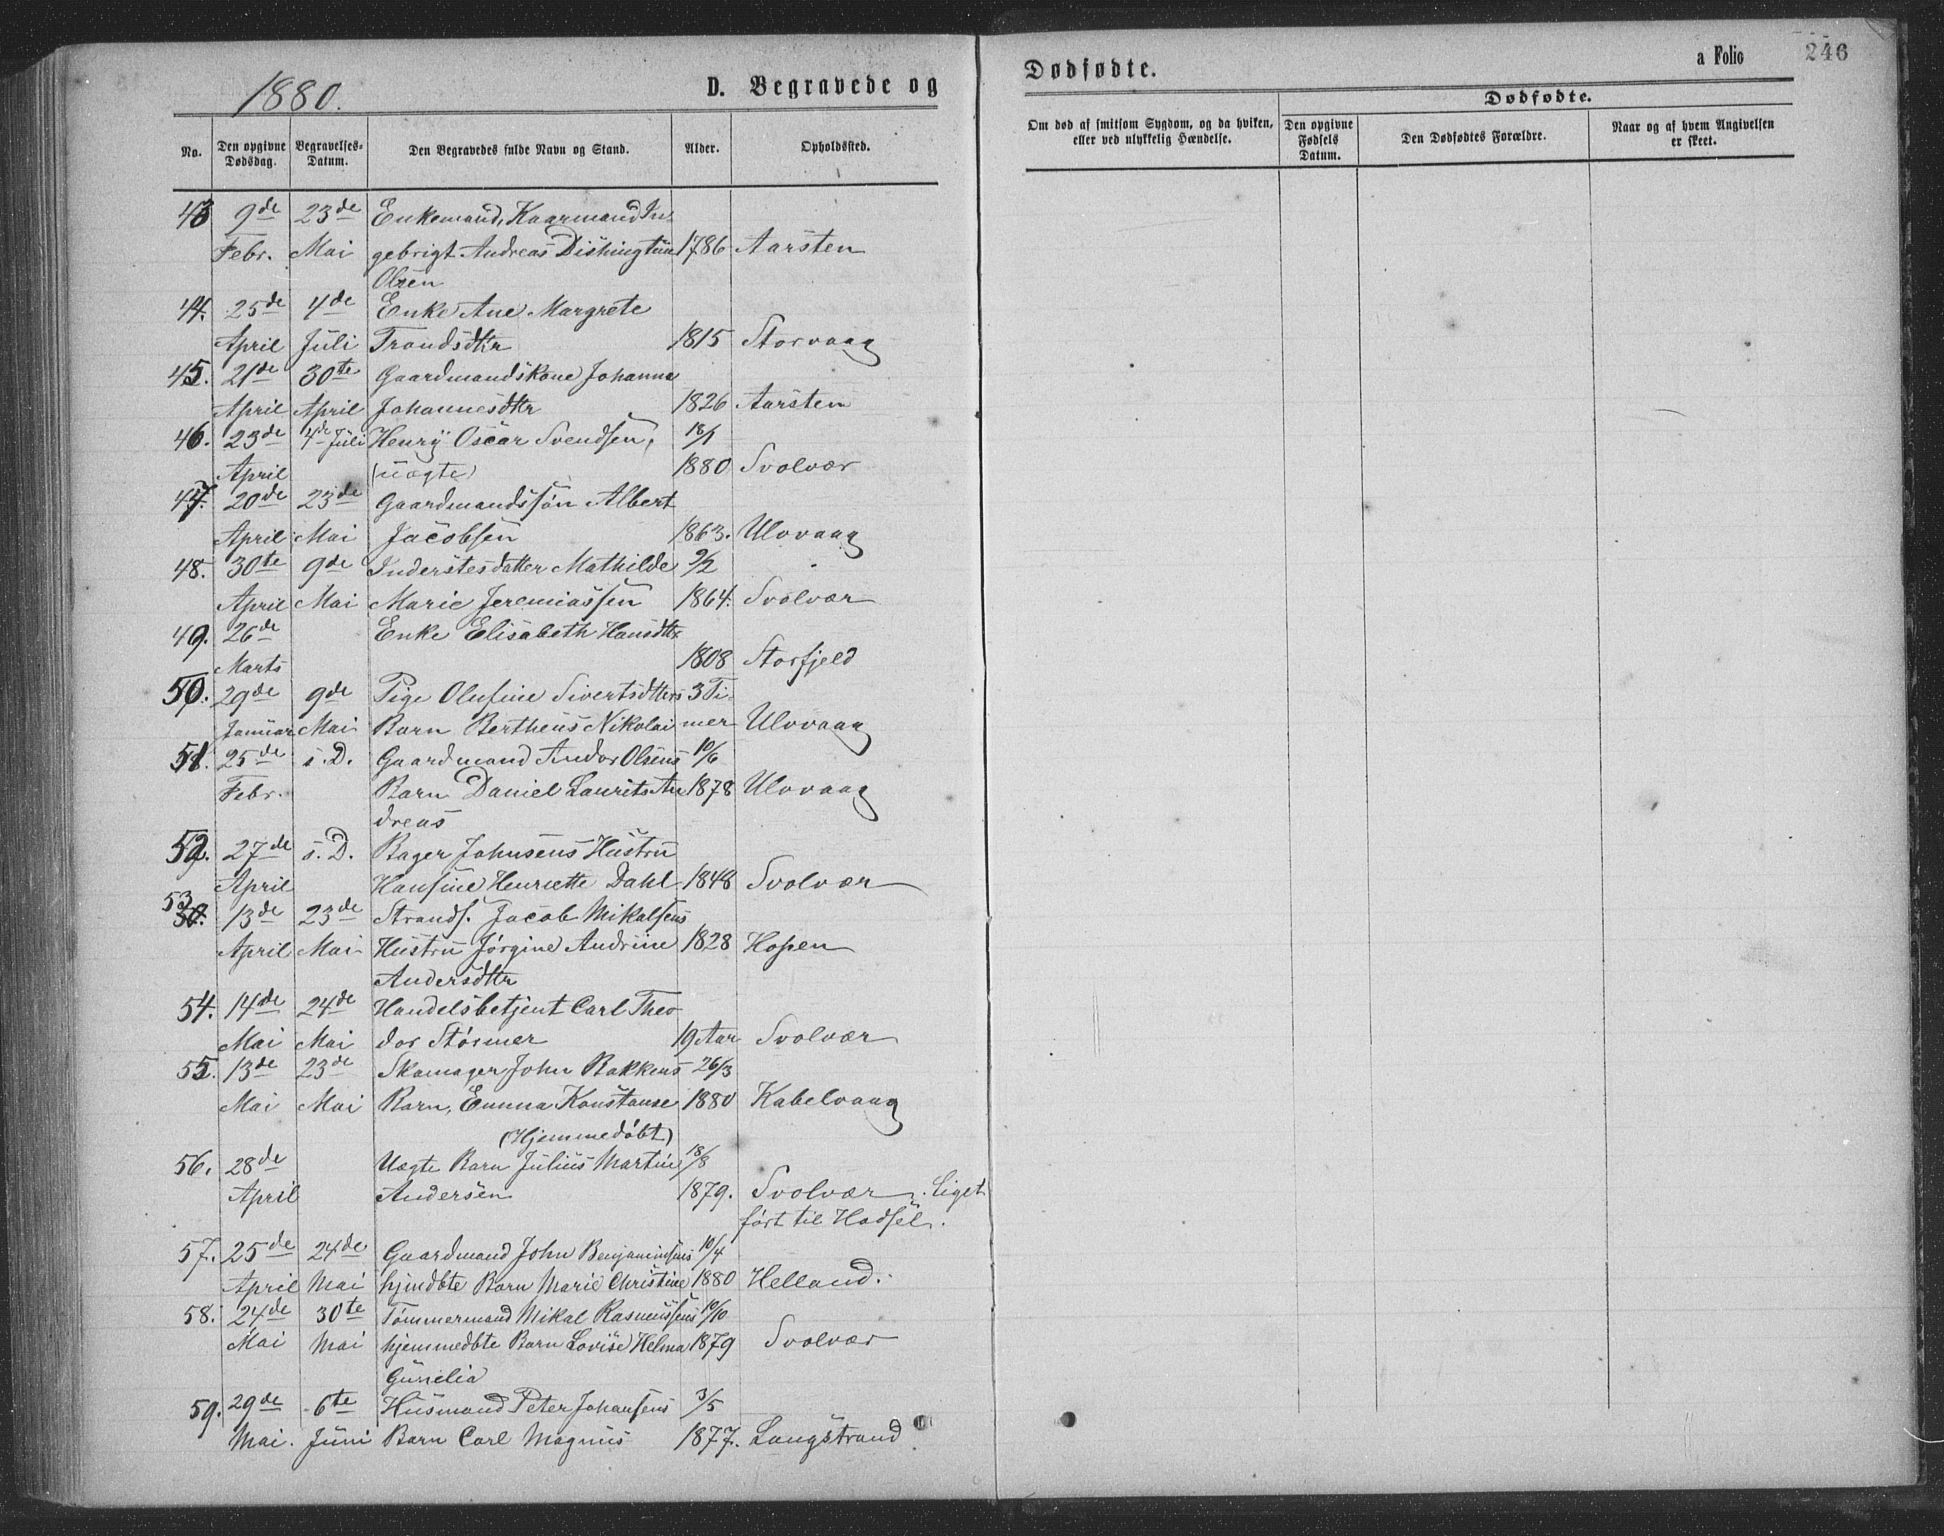 1880.
D. Begravede og
Dødfødte.
a Folio
246
No.
Den opgivne Dødsdag.
Begravelses-Datum.
Den Begravedes fulde Navn og Stand.
Alder.
Opholdssted.
Om død af smitsom Sygdom, og da hvilken, eller ved ulykkelig Hændelse.
Dødfødte.
Den opgivne Fødsels Datum.
Den Dødfødtes Forældre.
Naar og af hvem Angivelsen er skeet.
43 9de 23de Enkemand, Kaarmand In-
Febr. Mai gebrigt Andreas Dishingtun 1786 Aarsten
Olsen
44. 25de 4de Enke Ane Margrete
April Juli Trondsdtr 1815 Storvaag
45. 21de 30te Gaardmandskone Johanna
April April Johannesdtr 1826 Aarsten
46. 23de 4de Juli Henry Oscar Svendsen, 18/1
April (uægte) 1880 Svolvær
47. 20de 23de Gaardmandssøn Albert
April Mai Jacobsen 1863. Ulvvaag
48. 30te 9de Inderstesdatter Mathilde 9/2
April Mai Marie Jeremiassen 1864. Svolvær
49. 26de Enke Elisabeth Hansdtr
Marts 1808 Storfjeld
50. 29de 9de Pige Olufine Sivertsdtters 3 Ti-
Januar Mai Barn Bertheus Nikolai mer Ulvvaag
51. 25de s. D. Gaardmand Andor Olsens 10/6
Febr. Barn Daniel Laurits An 1878 Ulvvaag
dreas
52. 27de s. D. Bager Johnsens Hustru
April Hansine Henriette Dahl 1848 Svolvær
53
50. 13de 23de Strands. Jacob Mikalsens
April Mai Hustru Jørgine Andrine 1828 Hopen
Andersdtr
54. 14de 24de Handelsbetjent Carl Theo
Mai Mai dor Størmer 19 Aar Svolvær
55. 13de 23de Skomager John Bakkens 26/3
Mai Mai Barn, Emma Konstanse 1880 Kabelvaag
(Hjemmedøbt)
56. 28de Uægte Barn Julius Martin 18/8
April Andersen 1879. Svolvær. Liget
ført til Hadsel.
57. 25de 24de Gaardmand John Benjaminsens 10/4
April Mai hjmdbte Barn Marie Christine 1880 Helland.
58. 24de 30te Tømmermand Mikal Rasmussens 10/10
Mai Mai hjemmedbte Barn Lovise Helma 1879 Svolvær
Gunelia
59. 29de 6te Husmand Peter Johansens 3/5
Mai. Juni Barn Carl Magnus 1877. Langstrand